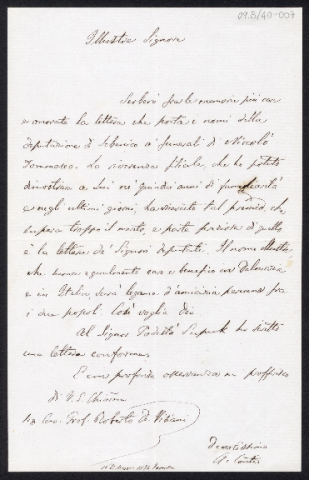 09.B/40-007
Illustre Signore
Serberò fra le memorie più care
e onorate la lettera che porta i nomi della
deputazione di Sebenico a' funerali di Niccolò
Tommaseo. La riverenza filiale, che ho potuto
dimostrare a Lui ne' quindici anni di famigliarità
e negli ultimi giorni, ha ricevuto tal premio, che
supera troppo il merito, e parte preziosa di quello
è la lettera de' Signori deputati. Il nome illustre
che suona egualmente caro e benefico in Dalmazia
e in Italia, sarà legame d'amicizia perenne fra
i due popoli. Così voglia Dio
Al Signor Podestà ho scritto
una lettera conforme.
E con profonda osservanza mi profferisco
di V. S. Chiarissima
Prof. Roberto De Visiani
Devotissimo
A. Conti